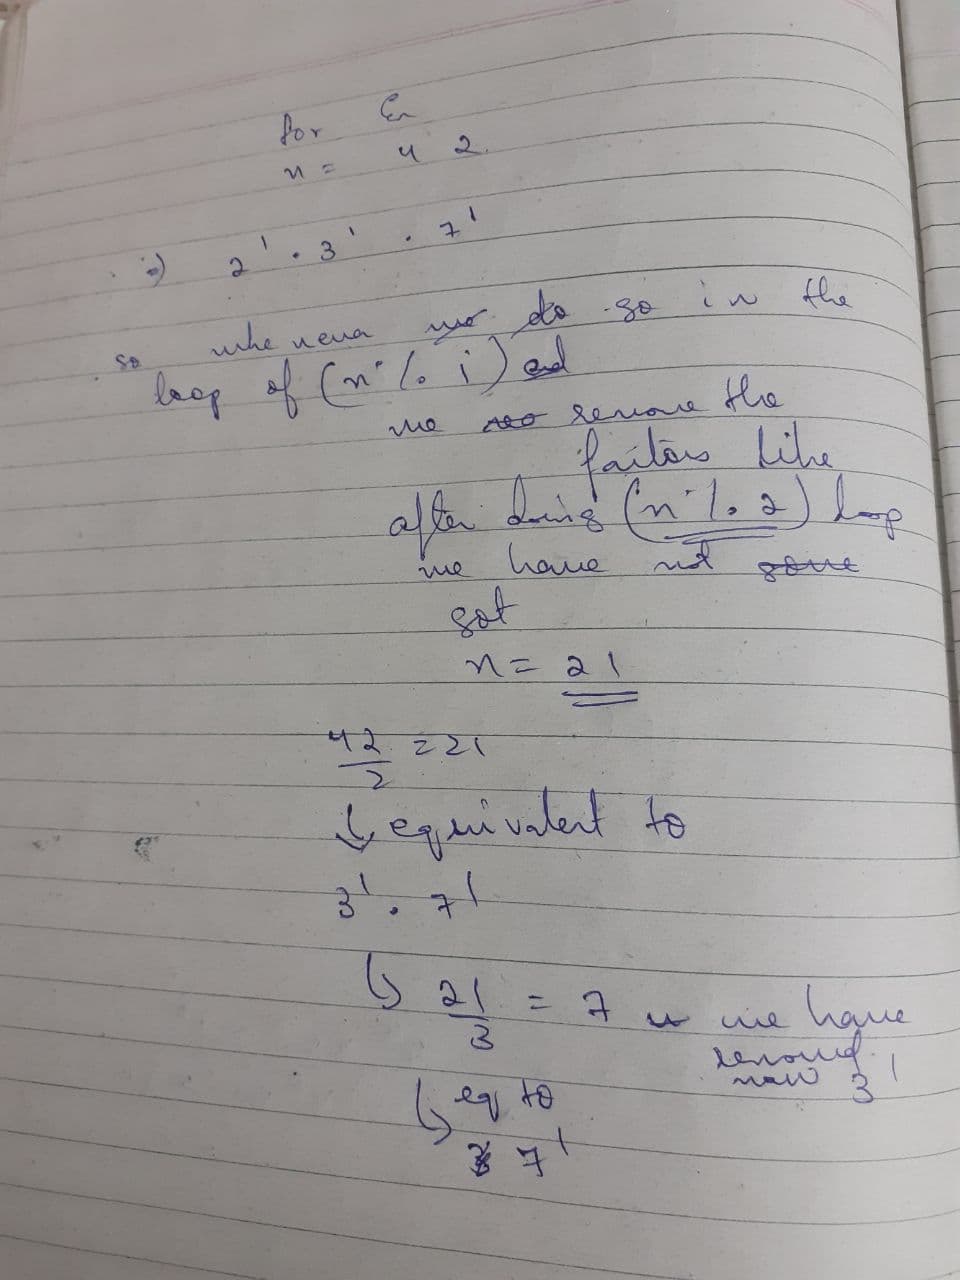 for Ex
n = 42.
=) 2¹ . 3¹ . 7¹
so whenever we do go in the
loop of (n % i) and
we remove the
factors like
after doing (n % 2) loop
we have not gone
got
n = 21
42/2 = 21
↓ equivalent to
3¹ . 7¹
↳ 21/3 = 7 we have
removed
now 3¹
↳ eq to
7¹